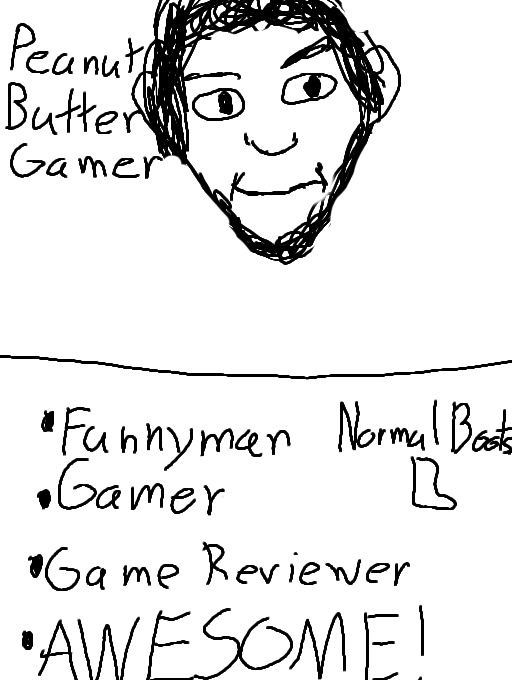 Peanut
Butter
Gamer
Funnyman
Normal Boots
Gamer
Game Reviewer
AWESOME!